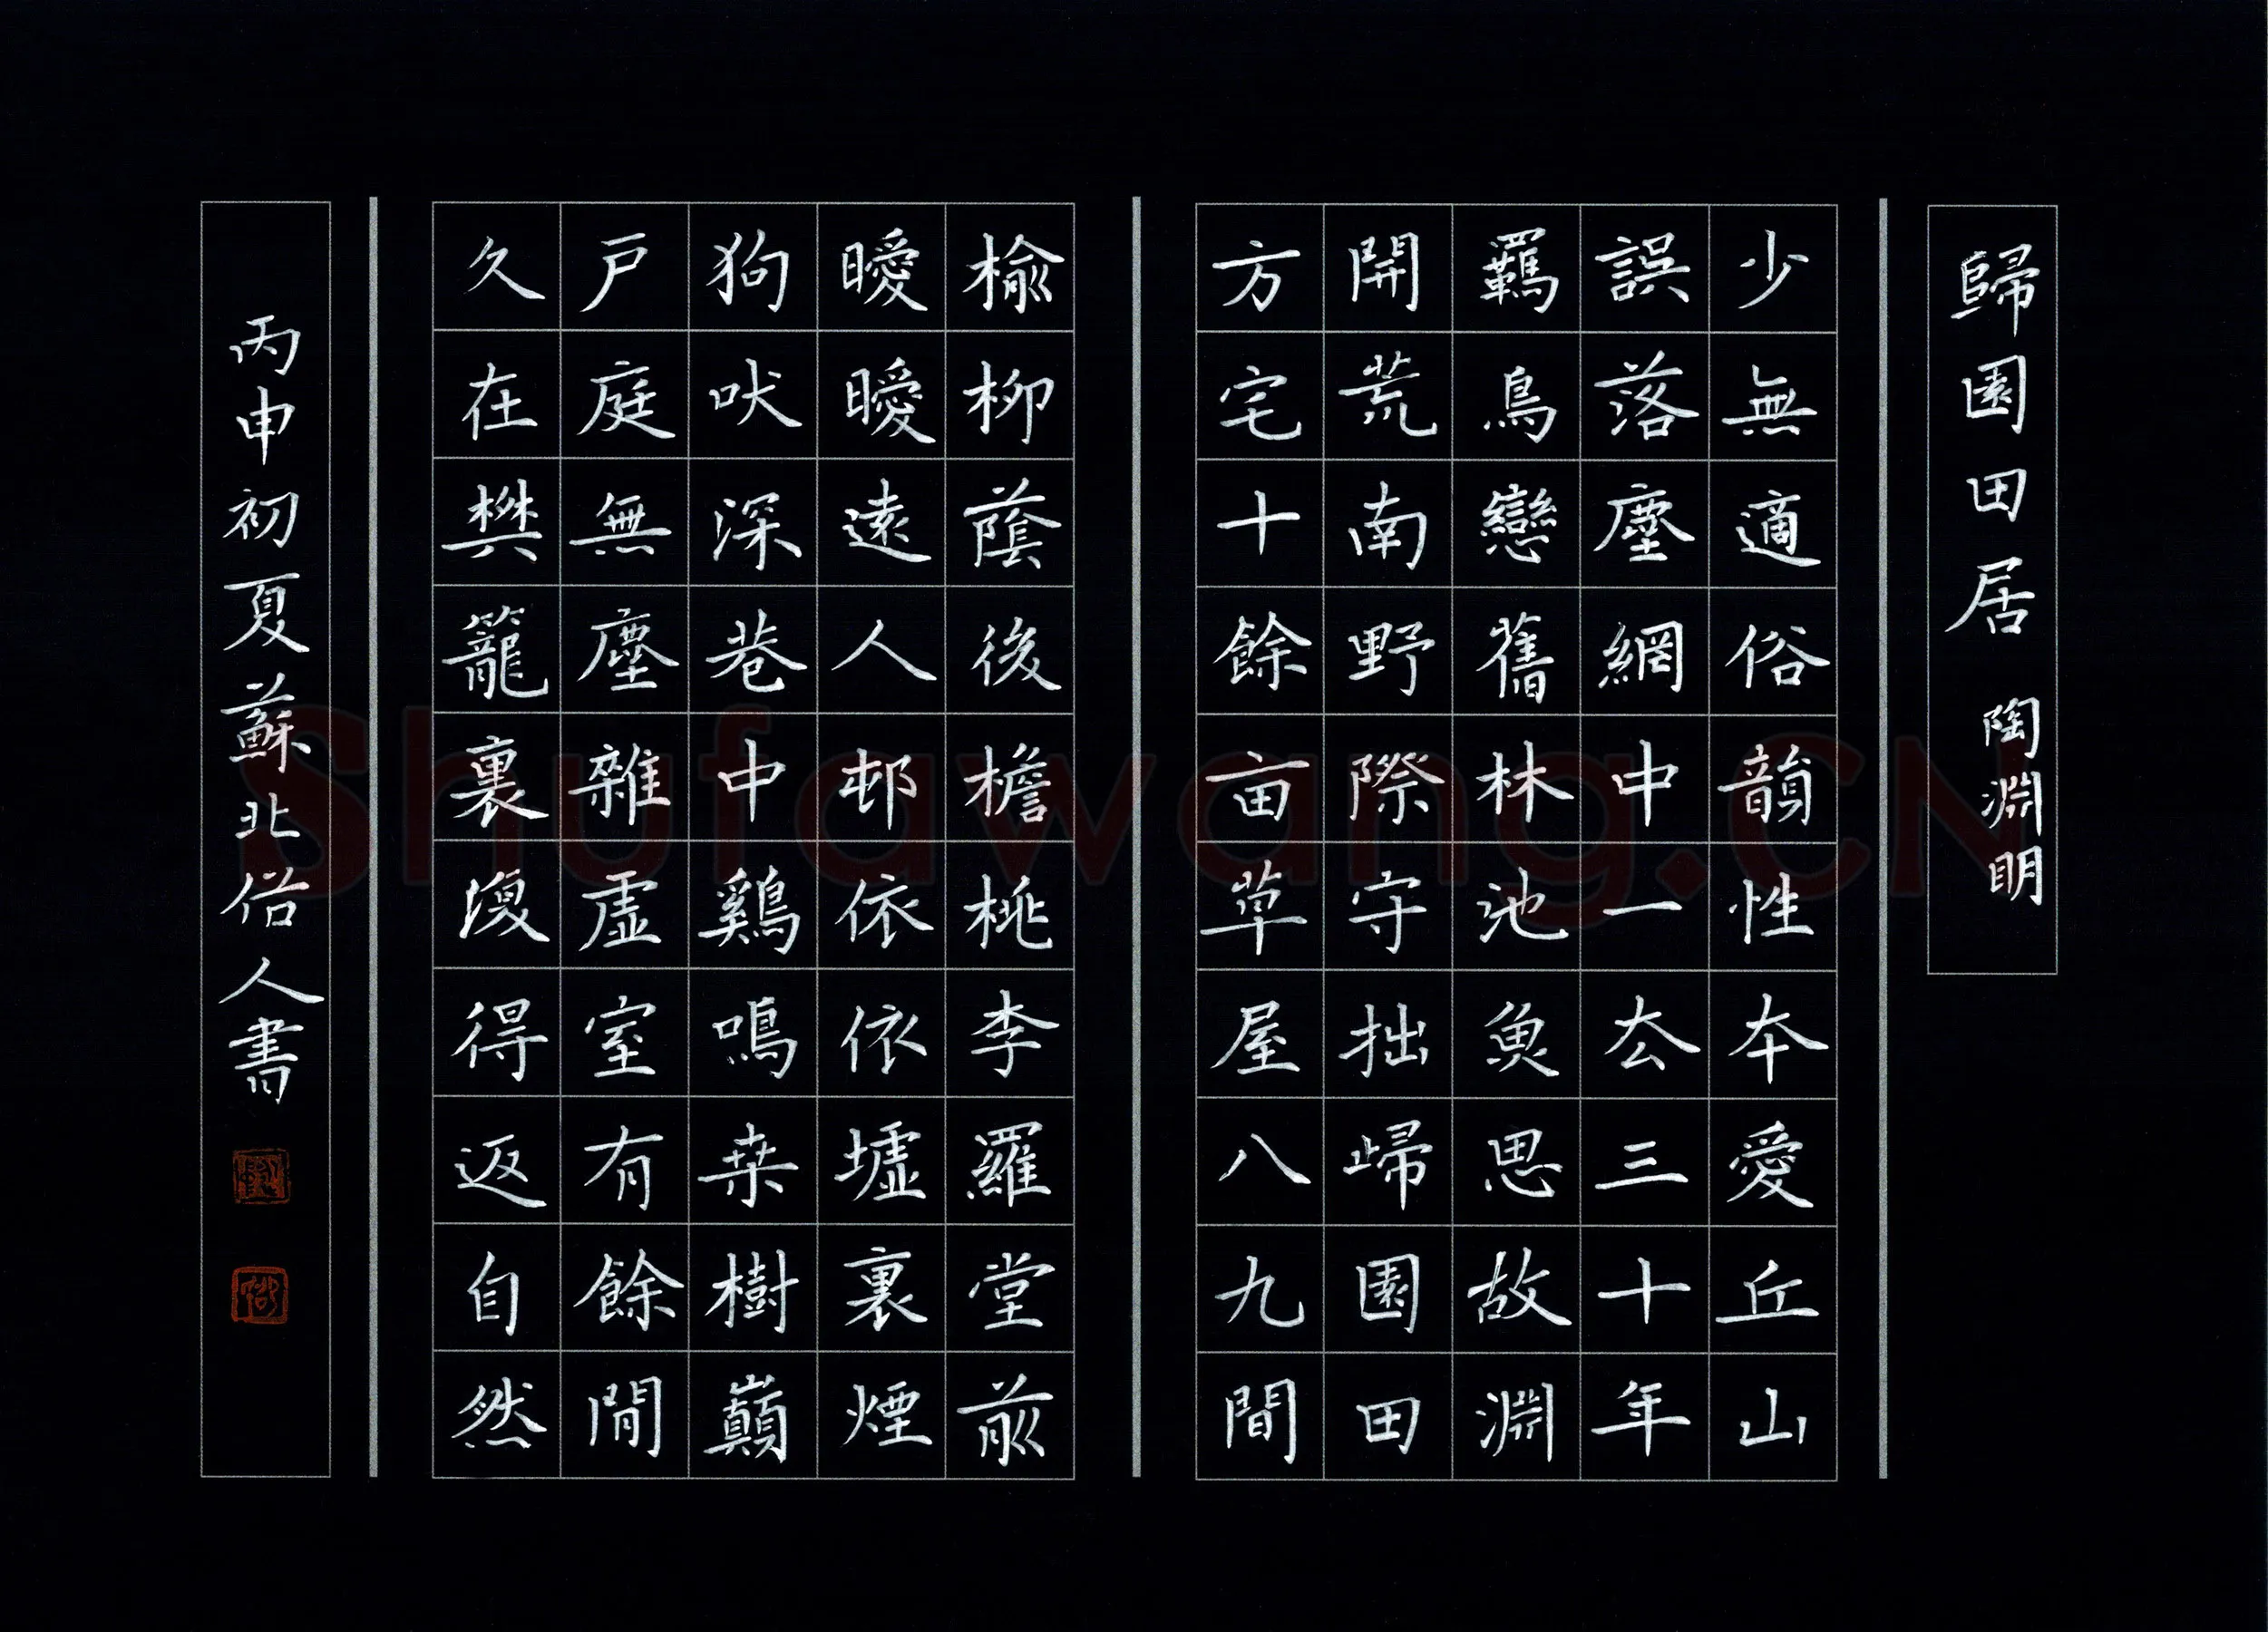 歸園田居 陶淵明
少無適俗韻性本愛丘山
誤落塵網中一去三十年
羈鳥戀舊林池魚思故淵
開荒南野際守拙歸園田
方宅十餘亩草屋八九間
榆柳蔭後檐桃李羅堂前
曖曖遠人邨依依墟裏煙
狗吠深巷中鷄鳴桒樹巔
戶庭無塵雜虛室有餘閒
久在樊籠裏復得返自然
丙申初夏蘇北俗人書
Shufawang.CN